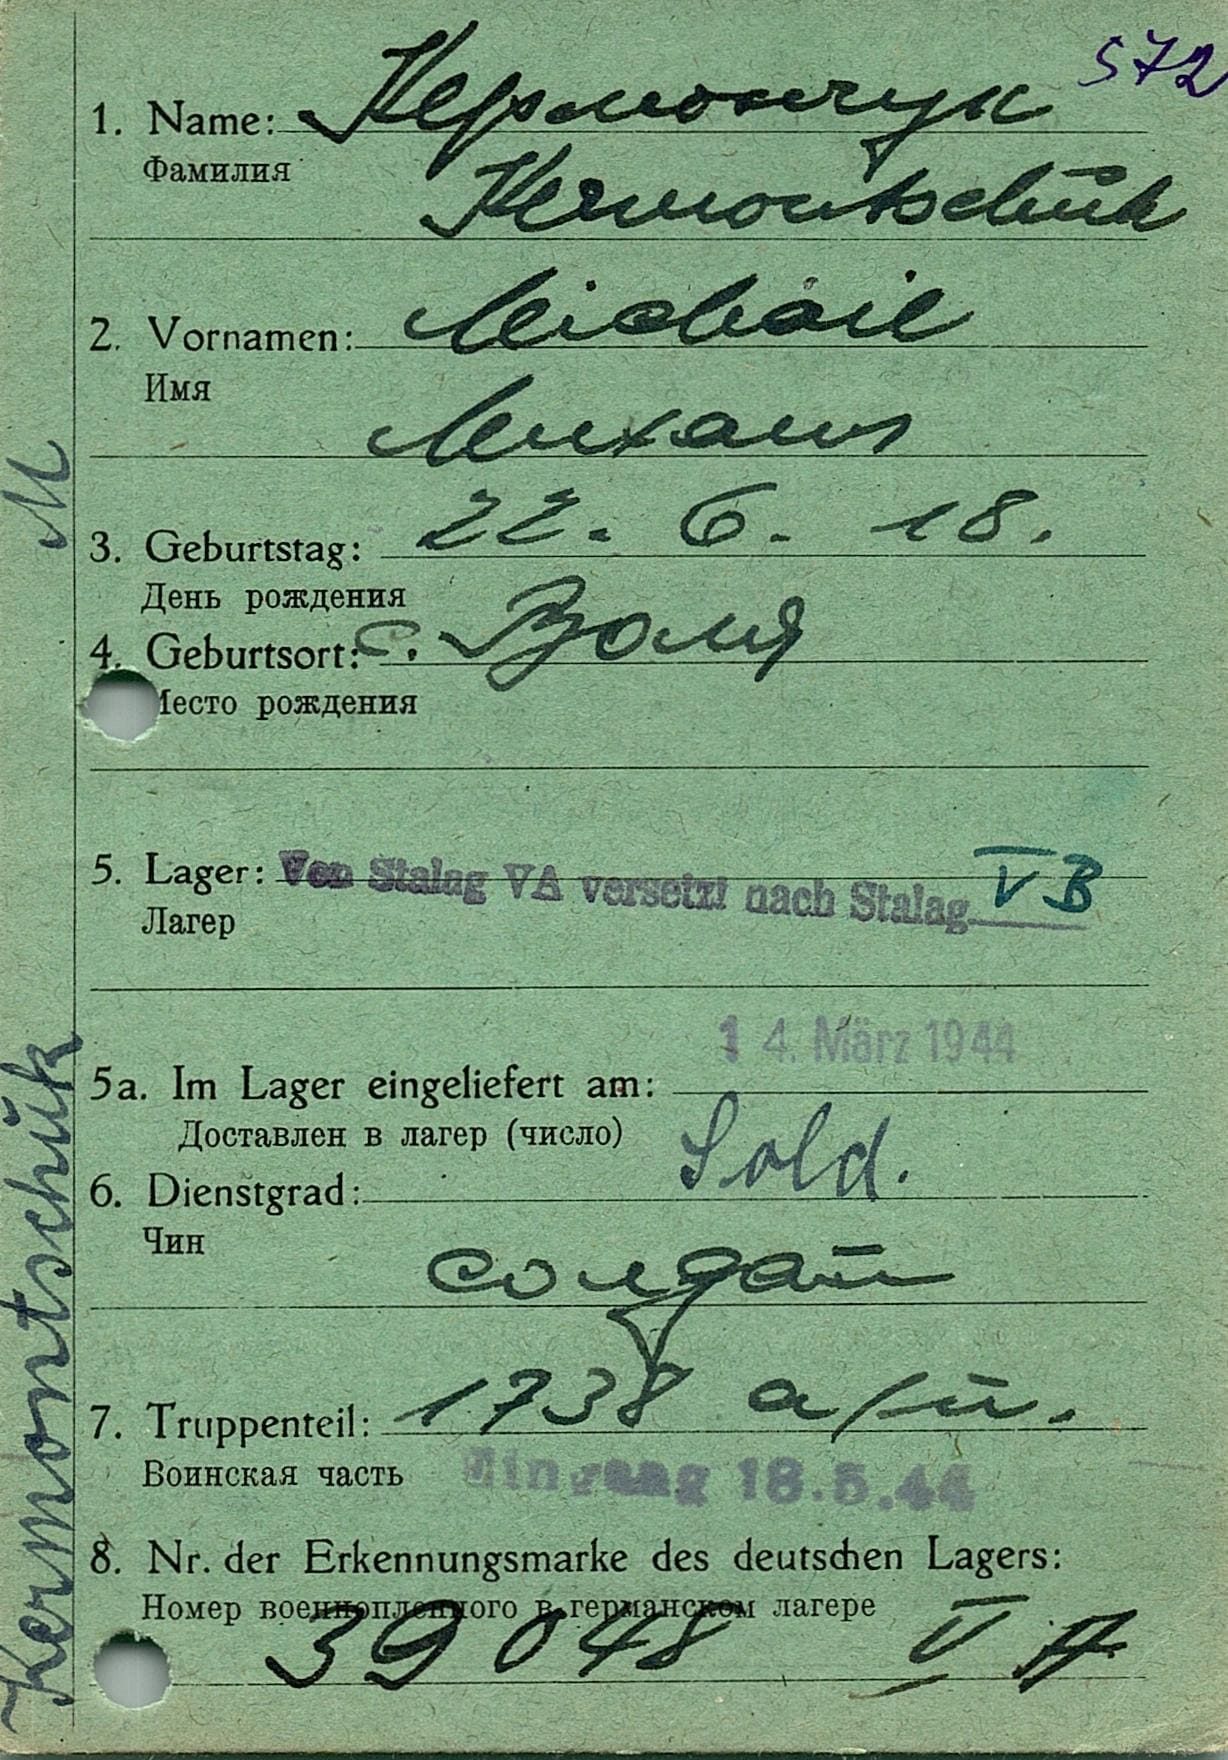 572
1. Name: Кермончук
Фамилия
Kermontschŭk
2. Vornamen: Michail
Имя
Михаил
3. Geburtstag: 22. 6. 18.
День рождения
4. Geburtsort: с. Воля
Место рождения
5. Lager: Von Stalag VA versetzt nach Stalag V B
Лагер
14. März 1944
5a. Im Lager eingeliefert am:
Доставлен в лагер (число)
6. Dienstgrad: Sold.
Чин
солдат
7. Truppenteil: 1738 а/п.
Воинская часть Eingang 18.5.44
8. Nr. der Erkennungsmarke des deutschen Lagers:
Номер военнопленного в германском лагере
39048 V A
Kermontschŭk M